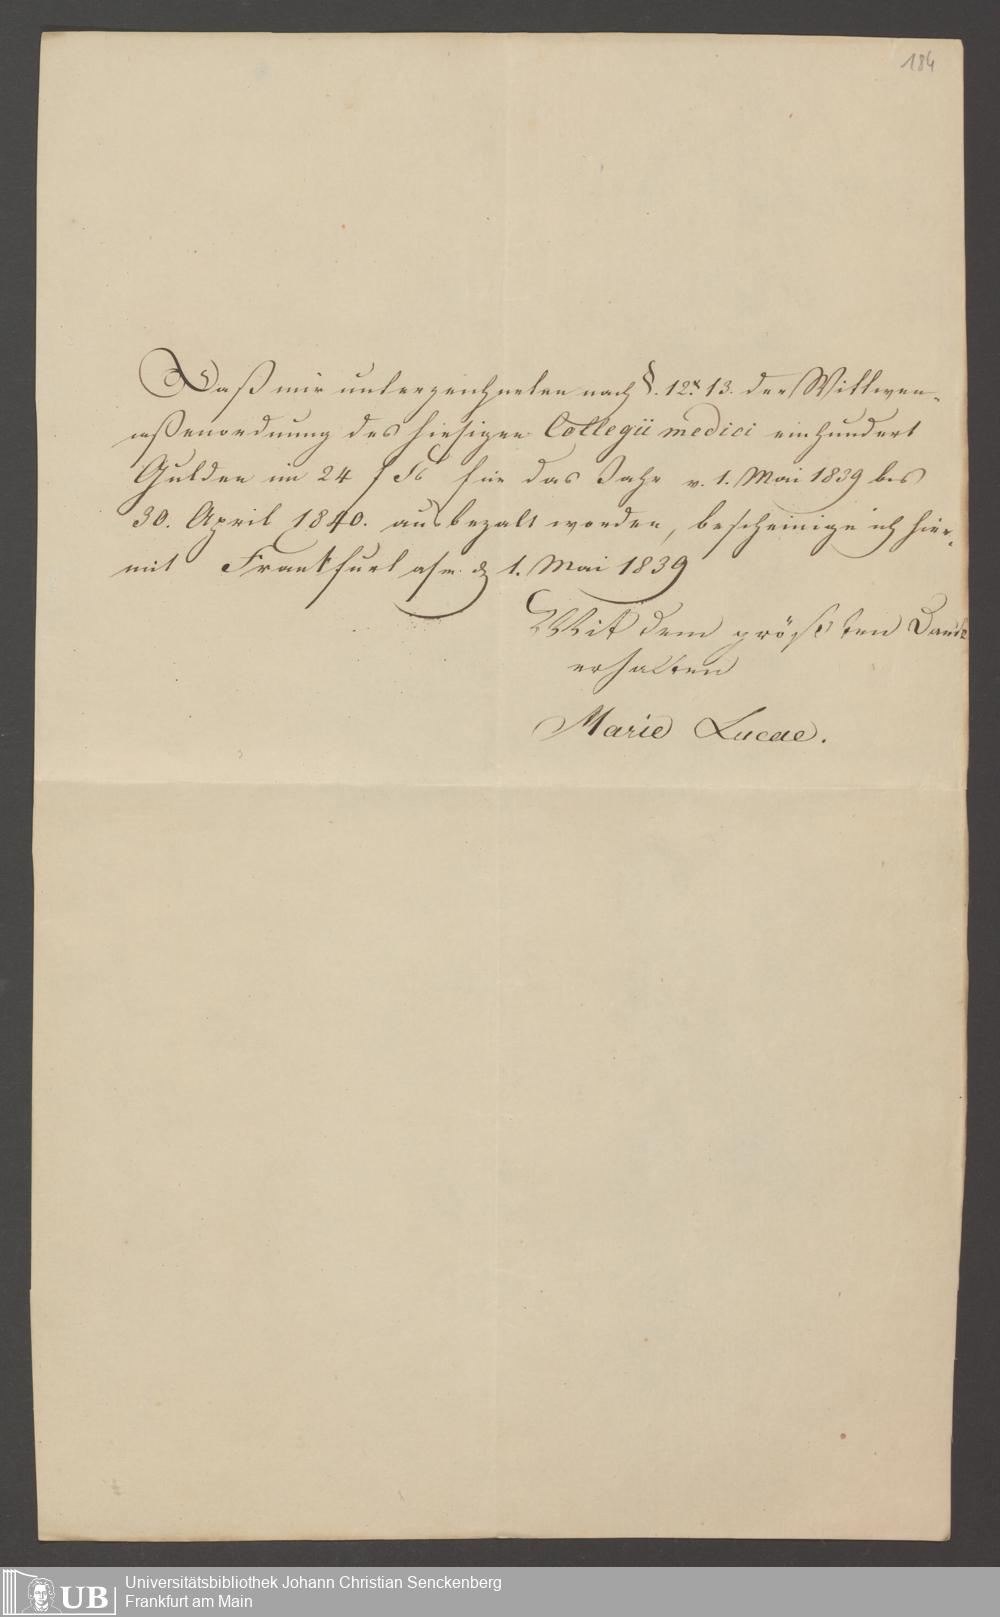 184
Daß mir unterzeichneten nach §. 12 & 13. der Wittwen-
cassenordnung des hiesigen Collegii medici einhundert
Gulden im 24 f für das Jahr v. 1. Mai 1839 bis
30. April 1840. ausbezalt worden, bescheinige ich hier-
mit Frankfurt a/m. d. 1. Mai 1839
Mit dem größten Danke
erhalten
Marie Lucae.
UB
Universitätsbibliothek Johann Christian Senckenberg
Frankfurt am Main